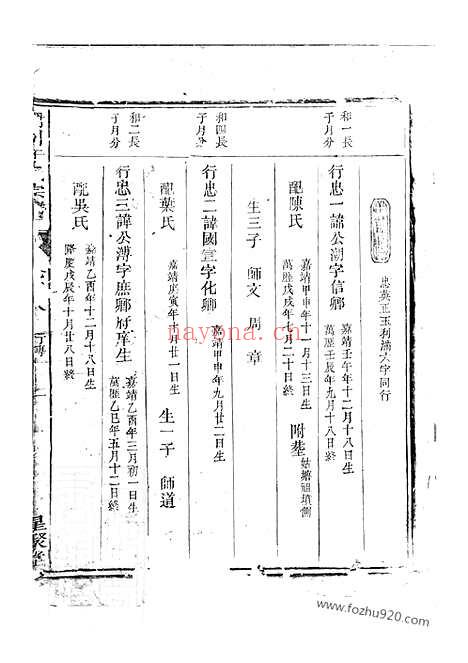 忠英正玉利濟六字同行
和一長
子月分
行忠一諱公湖字信卿
嘉靖壬午年十二月十八日生
萬歷壬辰年九月十八日終
配陳氏
嘉靖甲申年十一月十三日生
萬歷戊戌年七月二十日終
附塟
姑塘祖墳側
生三子 師文 周 章
和四長
子月分
行忠二諱國宣字化卿
嘉靖甲申年九月廿二日生
配葉氏
嘉靖庚寅年十月廿一日生
生一子 師道
和二長
子月分
行忠三諱公溥字庶卿府庠生
嘉靖乙酉年三月初一日生
萬歷乙巳年五月十二日終
配吳氏
嘉靖乙酉年十二月十八日生
隆慶戊辰年十月廿八日終
星聚堂
nayona.cn
www.fozhu920.com